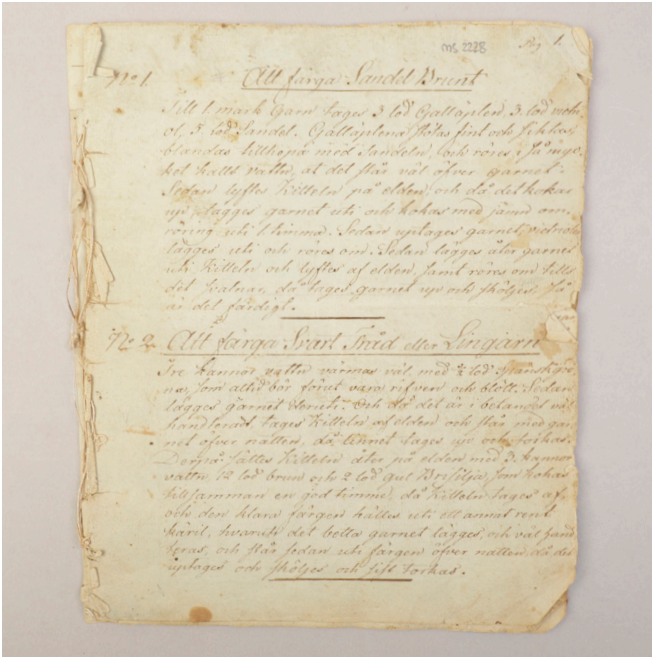 ms. 2228
Pag. 1.
No 1. Att färga Sandel Brunt
Till 1. mark Garn tages 3 lod Gallåplen, 3. lod
ol, 5 lod Sandel. Gallåplena stötas fint och siktas,
blandas tillhopa med Sandeln, och röres i så myc-
ket kallt vattn, at det står väl öfver garnet.
Sedan lyftes Kitteln på elden, och då det kokar
up, lägges garnet uti och kokas med jämn om-
röring uti 1 timma. Sedan uptages garnet,
lägges uti och röres om. Sedan lägges åter garnet
uti Kitteln och lyftes af elden, samt röres om tills
det svalnar, då tages garnet up och sköljes, så
är det färdigt.
No 2. Att färga Svart Tråd eller Lingarn
Tre kannor vattn värmas väl med lod Spanskgrö-
na, som altid bör förut vara rifven och blött. Sedan
lägges garnet deruti. Och då det är i betandet väl
handterad, tages Kitteln af elden och står med gar-
net öfver natten, då tages up och torkas.
Derpå sättes Kitteln åter på elden med 3. kannor
vattn, 12 lod brun och 2 lod gul Brisilja, som kokas
tillsamman en god timme, då Kitteln tages af
och den klara färgen hälles uti ett annat rent
käril, hvaruti det betta garnet lägges, och väl hand
teras, och står sedan uti färgen öfver natten, då det
uptages och sköljes och sist torkas.